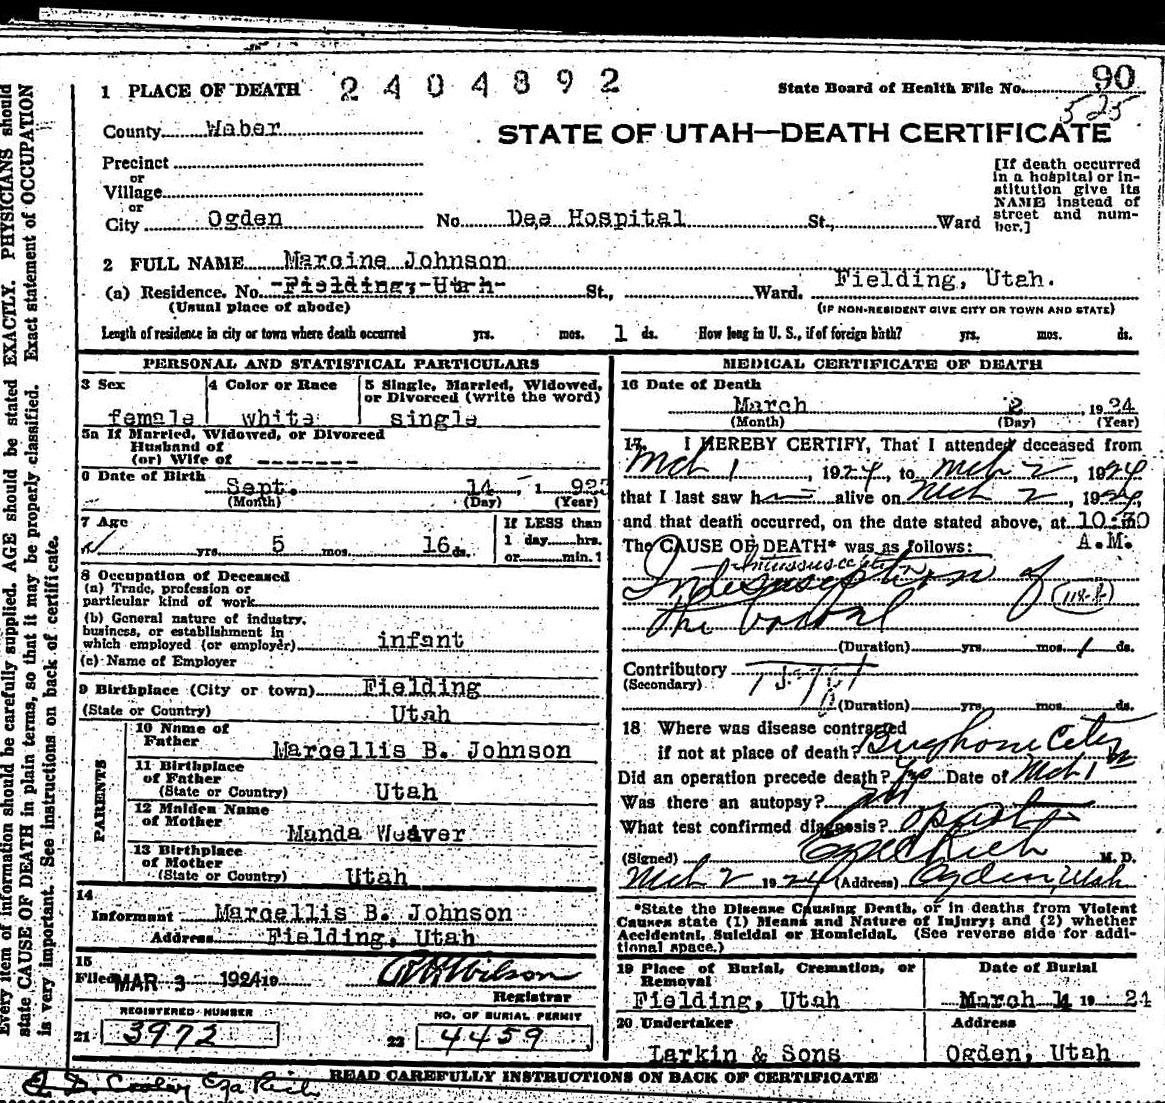 Every item of information should be carefully supplied. AGE should be stated EXACTLY. PHYSICIANS should
state CAUSE OF DEATH in plain terms, so that it may be properly classified. Exact statement of OCCUPATION
is very important. See instructions on back of certificate.
1 PLACE OF DEATH 2404892
State Board of Health File No. 90
525
County Weber
STATE OF UTAH—DEATH CERTIFICATE
Precinct
or
Village
or
City Ogden No. Dee Hospital St., Ward
[If death occurred
in a hospital or in-
stitution give its
NAME instead of
street and num-
ber.]
2 FULL NAME Marcine Johnson
(a) Residence. No. Fielding, Utah St., Ward. Fielding, Utah.
(Usual place of abode) (IF NON-RESIDENT GIVE CITY OR TOWN AND STATE)
Length of residence in city or town where death occurred yrs. mos. 1 ds. How long in U. S., if of foreign birth? yrs. mos. ds.
PERSONAL AND STATISTICAL PARTICULARS
3 Sex
female
4 Color or Race
white
5 Single, Married, Widowed,
or Divorced (write the word)
single
5a If Married, Widowed, or Divorced
Husband of
(or) Wife of -------
6 Date of Birth
Sept. 14, 1923
(Month) (Day) (Year)
7 Age
yrs. 5 mos. 16 ds.
If LESS than
1 day hrs.
or min.
8 Occupation of Deceased
(a) Trade, profession or
particular kind of work
(b) General nature of industry,
business, or establishment in
which employed (or employer) infant
(c) Name of Employer
9 Birthplace (City or town) Fielding
(State or Country) Utah
PARENTS
10 Name of
Father Marcellis B. Johnson
11 Birthplace
of Father
(State or Country) Utah
12 Maiden Name
of Mother Manda Weaver
13 Birthplace
of Mother
(State or Country) Utah
14
Informant Marcellis B. Johnson
Address Fielding, Utah
15
Filed MAR 3 1924 19 Wilson
Registrar
REGISTERED NUMBER
21 3972
NO. OF BURIAL PERMIT
22 4459
MEDICAL CERTIFICATE OF DEATH
16 Date of Death
March 2, 1924
(Month) (Day) (Year)
17. I HEREBY CERTIFY, That I attended deceased from
Mch 1, 1924, to Mch 2, 1924
that I last saw h alive on Mch 2, 1924,
and that death occurred, on the date stated above, at 10:30
A.M.
The CAUSE OF DEATH* was as follows:
Intussusception
of
the bowel
(Duration) yrs. mos. 1 ds.
Contributory
(Secondary)
(Duration) yrs. mos. ds.
18 Where was disease contracted
if not at place of death? City
Did an operation precede death? Yes Date of Mch 1
Was there an autopsy?
What test confirmed diagnosis?
(Signed) Ezra C Rich M. D.
Mch 2 1924 (Address) Ogden, Utah
*State the Disease Causing Death, or in deaths from Violent
Causes state (1) Means and Nature of Injury; and (2) whether
Accidental, Suicidal or Homicidal. (See reverse side for addi-
tional space.)
19 Place of Burial, Cremation, or
Removal
Fielding, Utah
Date of Burial
March 4 19 24
20 Undertaker
Larkin & Sons
Address
Ogden, Utah
Cooley Ezra Rich
READ CAREFULLY INSTRUCTIONS ON BACK OF CERTIFICATE